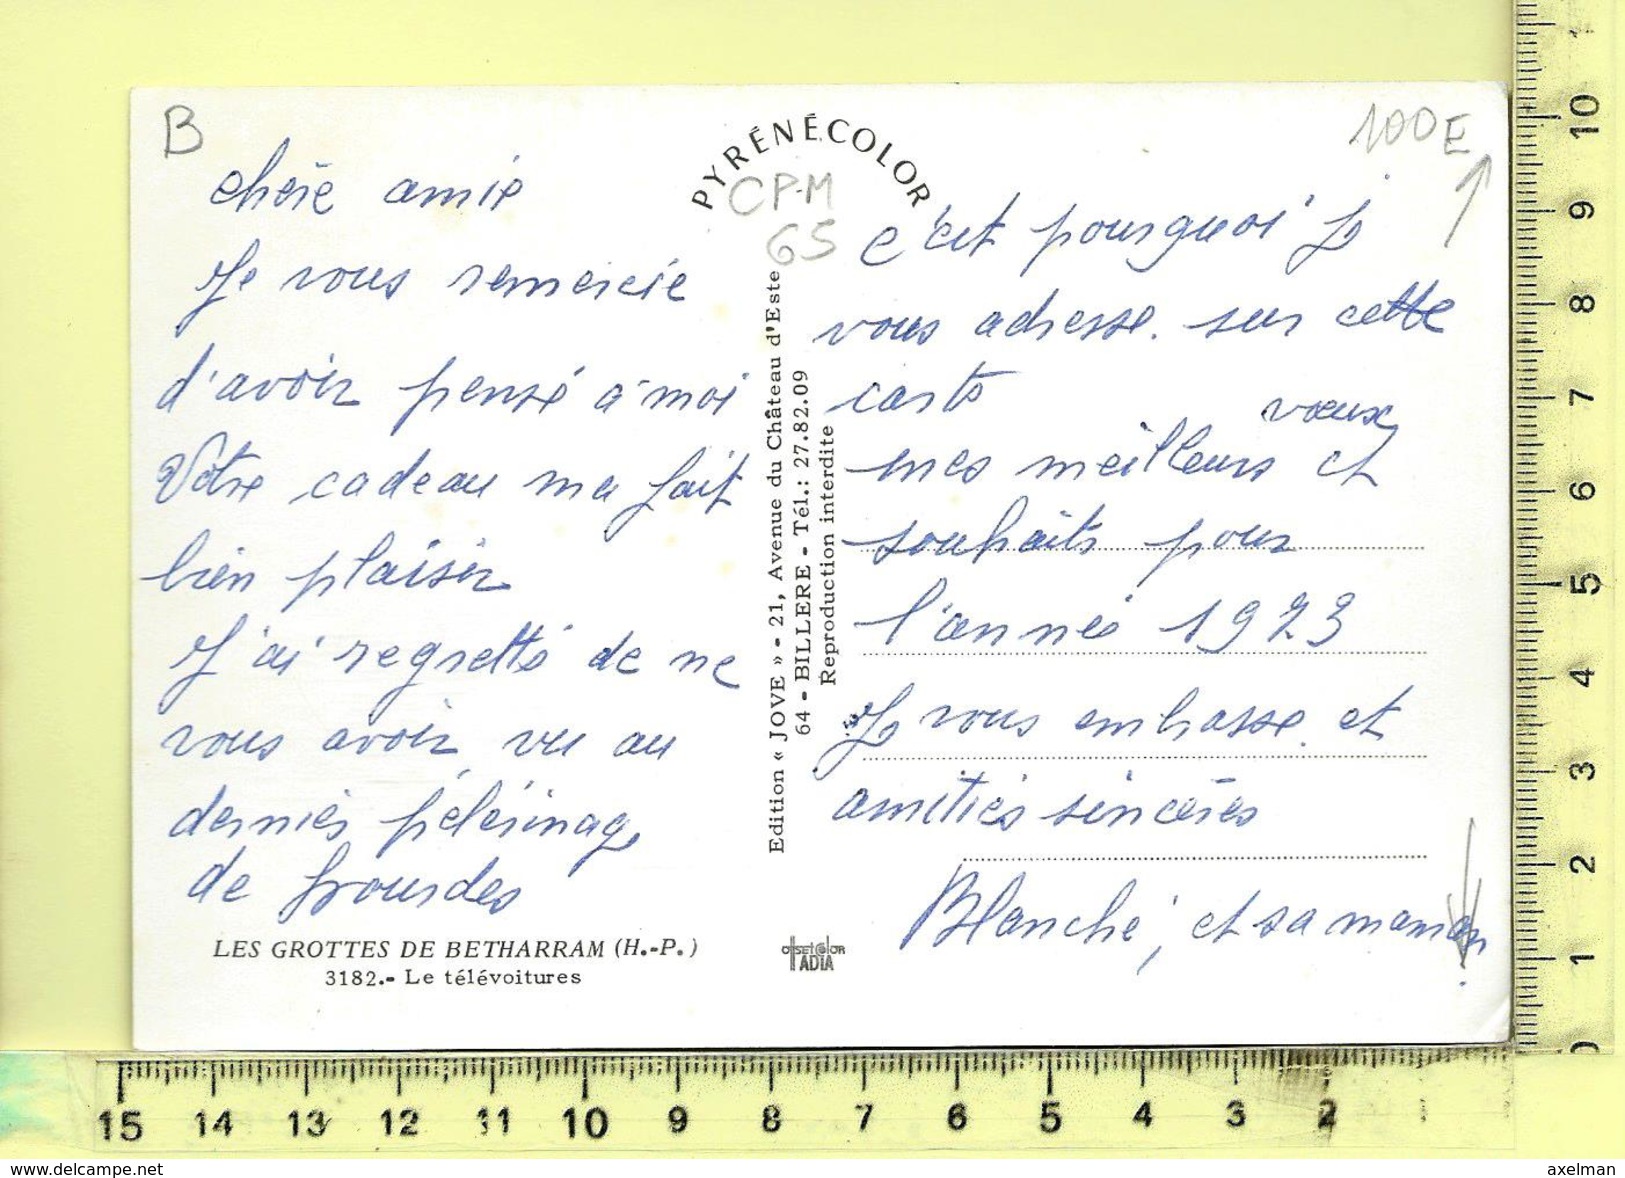 B
chère amie
Je vous remercie
d'avoir pensé à moi
Votre cadeau ma fait
bien plaisir
J'ai regretté de ne
vous avoir vu au
dernier pélérinage
de Lourdes
LES GROTTES DE BETHARRAM (H.-P.)
3182.- Le télévoitures
PYRÉNÉCOLOR
CPM
65
Edition « JOVE » - 21, Avenue du Château d'Este
64 - BILLERE - Tél.: 27.82.09
Reproduction interdite
OFFSETCOLOR
ADIA
100E
c'est pourquoi je
vous adresse sur cette
carte
mes meilleurs vœux et
souhaits pour
l'année 1973
Je vous embrasse et
amitiés sincères
Blanche, et sa maman
10
9
8
7
6
5
4
3
2
1
0
15 14 13 12 11 10 9 8 7 6 5 4 3 2
www.delcampe.net
axelman